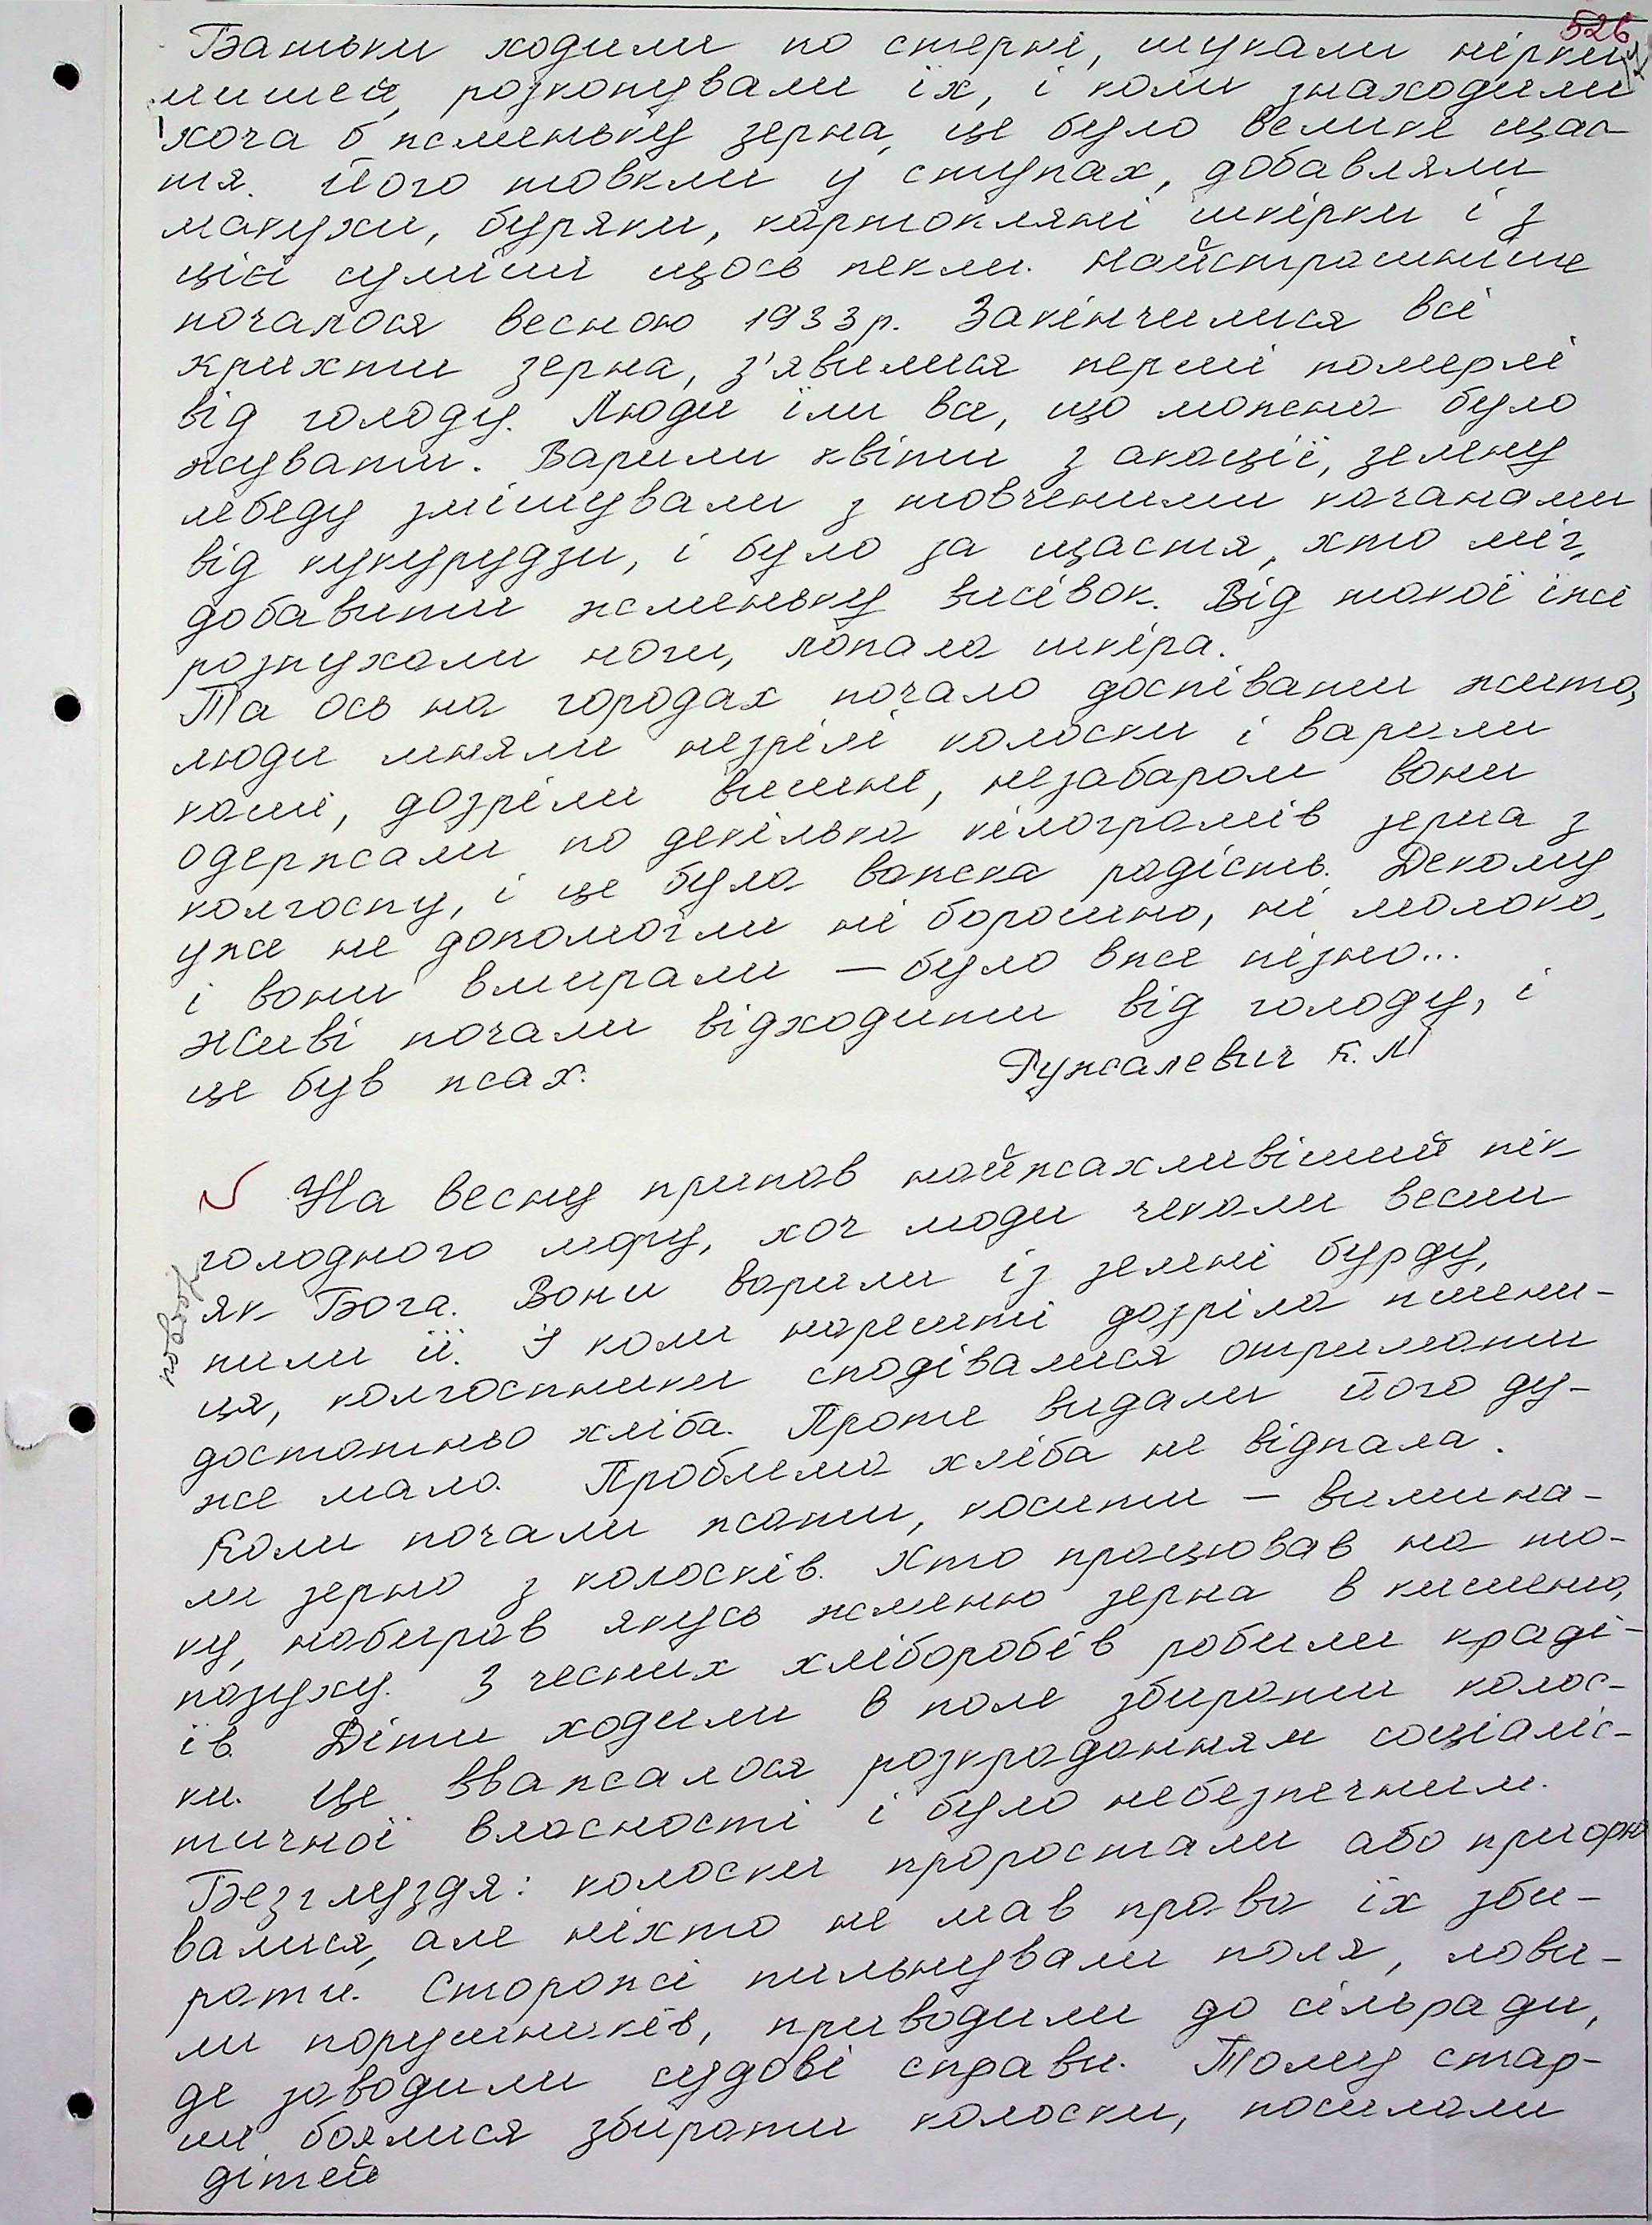 526
Батьки ходили по стерні, шукали нірки
мишей, розкопували їх, і коли знаходили
хоча б жменьку зерна, це було велике щас-
тя. Його товкли у ступах, добавляли
макухи, буряки, картопляні шкірки і з
цієї суміші щось пекли. Найстрашніше
почалося весною 1933 р. Закінчилися всі
крихти зерна, з'явилися перші померлі
від голоду. Люди їли все, що можна було
жувати. Варили квіти з акації, зелену
лебеду змішували з товченими качанами
від кукурудзи, і було за щастя, хто міг,
добавити жменьку висівок. Від такої їжі
розпухали ноги, лопала шкіра.
Та ось на городах почало доспівати жито,
люди мняли незрілі колоски і варили
каші, дозріли вишні, незабаром вони
одержали по декілька кілограмів зерна з
колгоспу, і це була важка радість. Декому
уже не допомогли ні борошно, ні молоко,
і вони вмирали — було вже пізно...
Живі почали відходити від голоду, і
це був жах.
Ружалевич Є. М
На весну припав найжахливіший пік
голодного мору, хоч люди чекали весни
як Бога. Вони варили із зелені бурду,
пили її. І коли нарешті дозріла пшени-
ця, колгоспники сподівалися отримати
достатньо хліба. Проте видали його ду-
же мало. Проблема хліба не відпала.
Коли почали жати, косити — вимина-
ли зерно з колосків. Хто працював на то-
ку, набирав якусь жменю зерна в кишеню,
пазуху. З чесних хліборобів робили краді-
їв. Діти ходили в поле збирати колос-
ки. Це вважалося розкраданням соціаліс-
тичної власності і було небезпечним.
Безглуздя: колоски проростали або приорю
валися, але ніхто не мав права їх зби-
рати. Сторожі пильнували поля, лови-
ли порушників, приводили до сільради,
де заводили судові справи. Тому стар-
ші боялися збирати колоски, посилали
дітей